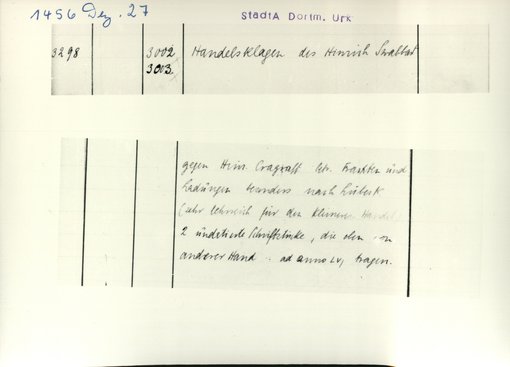 1456 Dez. 27
StadtA Dortm. Urk
3298 3002 Handelsklagen des Heinrich Swabbart
3003
gegen Heinr. Cragzaft betr. Frachten und
Ladungen besonders nach Lübeck
(sehr lehrreich für den kleineren Handel
2 undatierte Schriftstücke, die oben von
anderer Hand - ad anno LVI tragen.